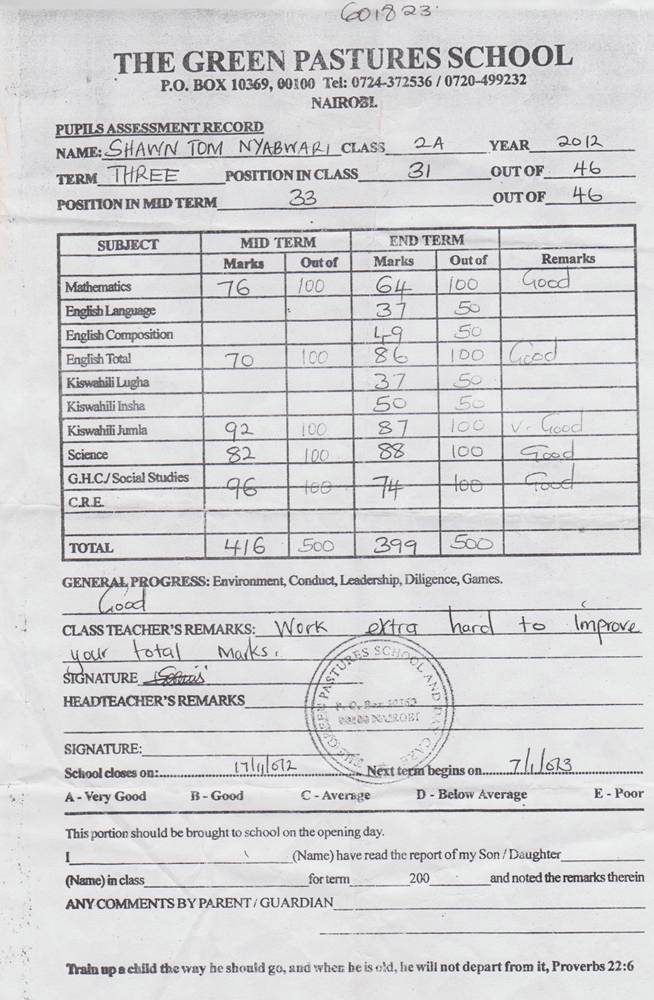 601823
THE GREEN PASTURES SCHOOL
P.O. BOX 10369, 00100 Tel: 0724-372536 / 0720-499232
NAIROBI.
PUPILS ASSESSMENT RECORD
NAME: SHAWN TOM NYABWARI CLASS 2A YEAR 2012
TERM THREE POSITION IN CLASS 31 OUT OF 46
POSITION IN MID TERM 33 OUT OF 46
SUBJECT MID TERM END TERM
Marks Out of Marks Out of Remarks
Mathematics 76 100 64 100 Good
English Language 37 50
English Composition 49 50
English Total 70 100 86 100 Good
Kiswahili Lugha 37 50
Kiswahili Insha 50 50
Kiswahili Jumla 92 100 87 100 V. Good
Science 82 100 88 100 Good
G.H.C./Social Studies 96 100 74 100 Good
C.R.E.
TOTAL 416 500 399 500
GENERAL PROGRESS: Environment, Conduct, Leadership, Diligence, Games.
Good
CLASS TEACHER'S REMARKS: Work extra hard to Improve
your total Marks.
SIGNATURE
HEADTEACHER'S REMARKS
THE GREEN PASTURES SCHOOL AND DAY CARE
P. O. Box 10369
00100 NAIROBI
SIGNATURE:
School closes on: Next term begins on
A - Very Good B - Good C - Average D - Below Average E - Poor
This portion should be brought to school on the opening day.
I (Name) have read the report of my Son / Daughter
(Name) in class for term 200 and noted the remarks therein
ANY COMMENTS BY PARENT / GUARDIAN
Train up a child the way he should go, and when he is old, he will not depart from it, Proverbs 22:6